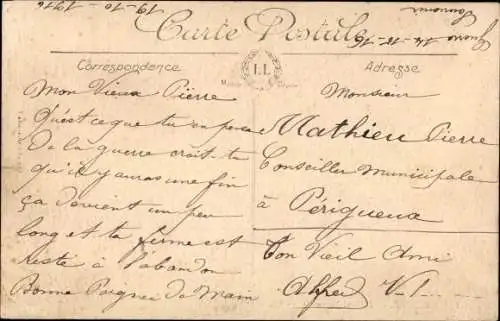 19-10-1916
Carte Postale
Guerre 14-15-16
Souvenir
Correspondence
LL
Adresse
Mon Vieux Pierre
Qu'est ce que tu en pense
De la guerre croit tu
qu'il y auras une fin
ça devient un peu
long et ta ferme est
resté à l'abandon
Bonne Poignée de Main
Monsieur
Mathieu Pierre
Conseiller Municipale
à Périgueux
Ton Vieil Ami
Alfred V